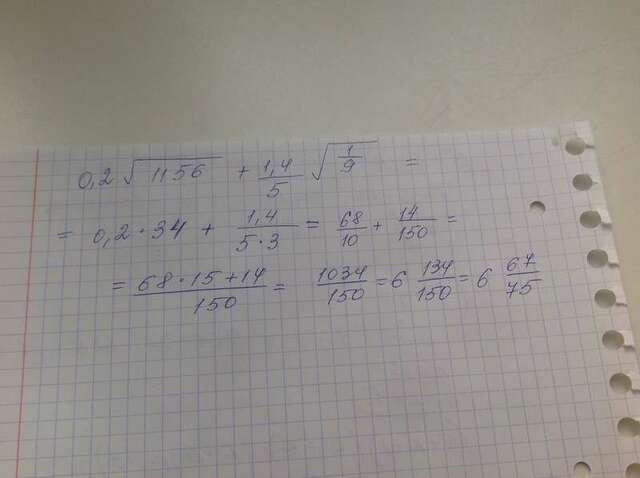 0,2 √1156 + 1,4/5 √1/9 =
= 0,2 · 34 + 1,4/5·3 = 68/10 + 14/150 =
= 68·15+14/150 = 1034/150 = 6 134/150 = 6 67/75